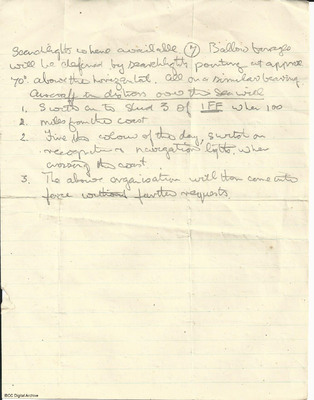 Searchlights where available (7) Balloon barrages
will be defined by searchlights pointing at approx
70° above the horizontal. All on a similar bearing
Aircraft in distress over the sea will
1. Switch on to Stud 3 of IFF when 100
2. miles from the coast
2. Fire the colour of the day, switch on
recognition & navigation lights, when
crossing the coast
3. The above organisation will then come into
force without further requests.
IBCC Digital Archive